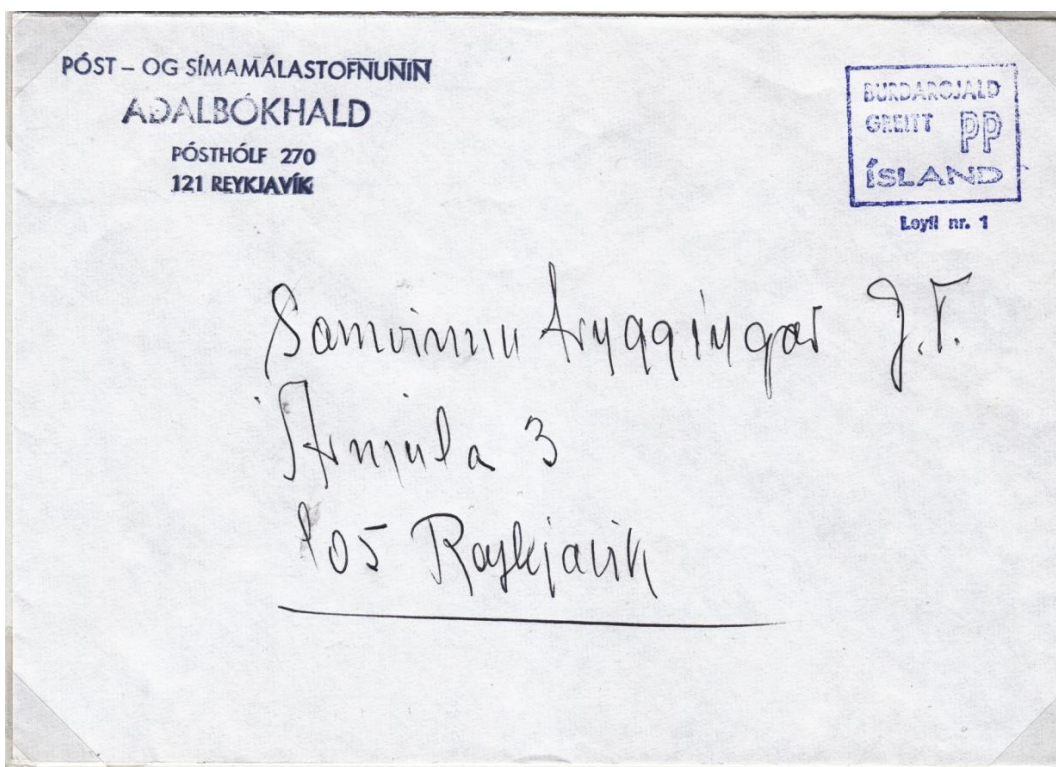 PÓST – OG SÍMAMÁLASTOFNUNIN
AÐALBÓKHALD
PÓSTHÓLF 270
121 REYKJAVÍK
BURÐARGJALD
GREITT PP
ÍSLAND
Leyfi nr. 1
Samvinnu tryggingar g.t.
Ármúla 3
105 Reykjavík